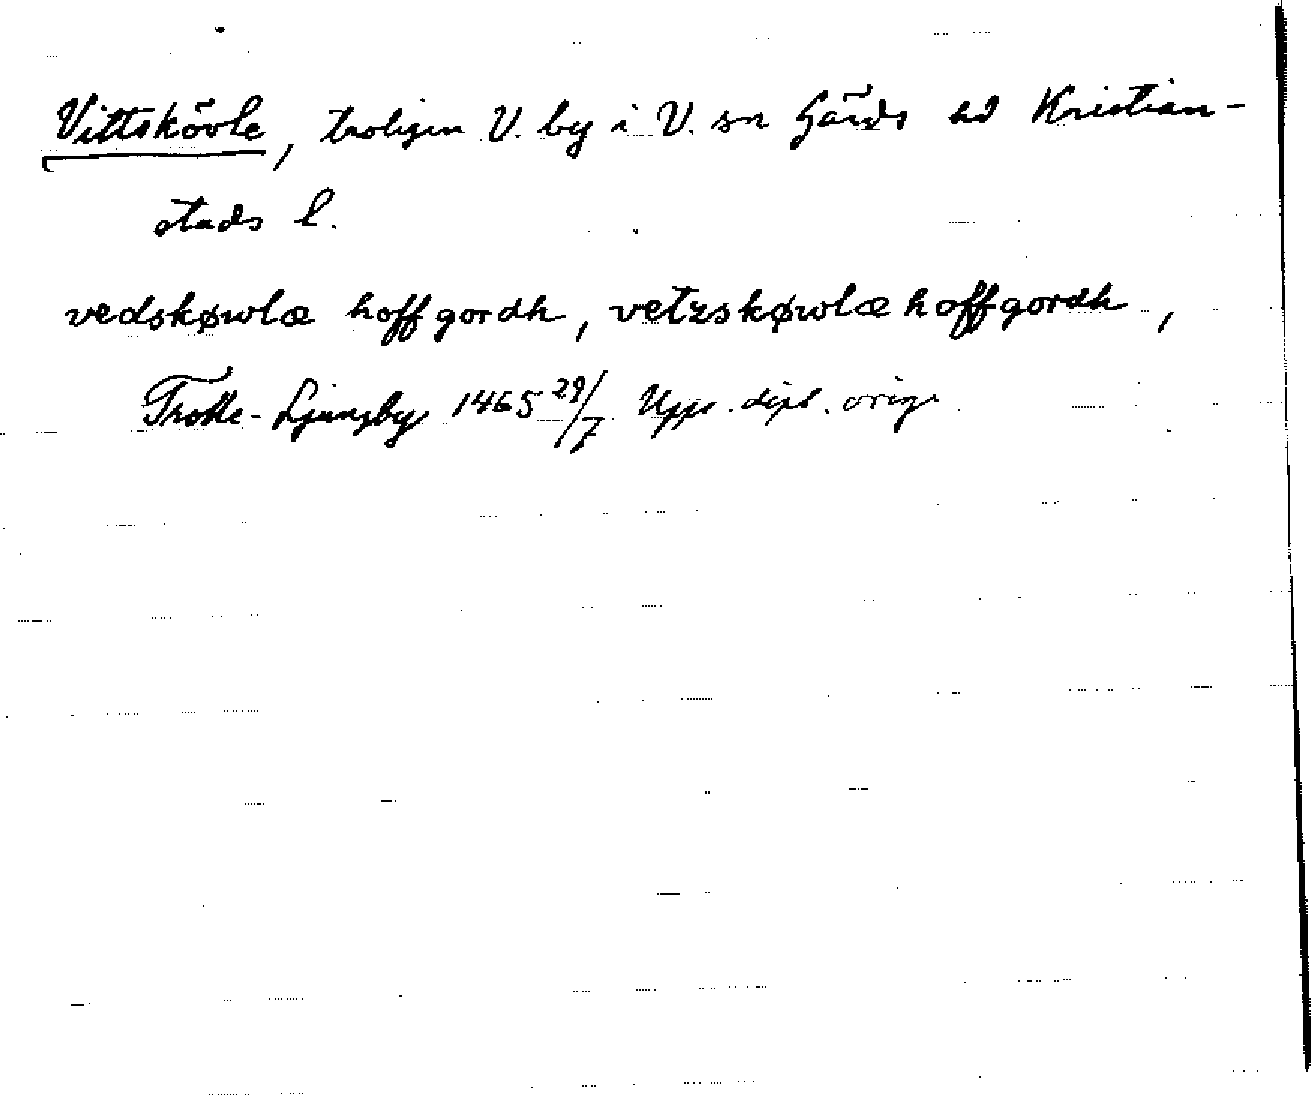 Vittskövle, troligen V. by i V. sn Gärds hd Kristian-
stads l.
vedskøwlæ hoffgordh, vetzskøwlæ hoffgordh,
Trolle-Ljungby 1465 29/7 Upps. dipl. orig.